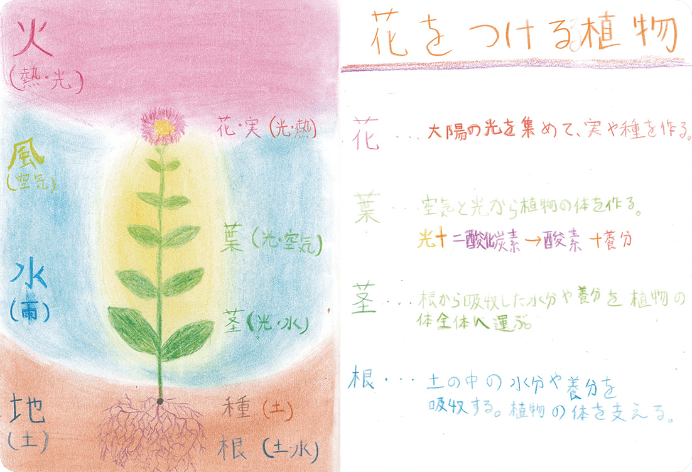 火
(熱・光)
風
(空気)
水
(雨)
地
(土)
花・実(光・熱)
葉(光・空気)
茎(光・水)
種(土)
根(土・水)
花をつける植物
花・・・大陽の光を集めて、実や種を作る。
葉・・・空気と光から植物の体を作る。
光+二酸化炭素→酸素+養分
茎・・・根から吸収した水分や養分を植物の
体全体へ運ぶ。
根・・・土の中の水分や養分を
吸収する。植物の体を支える。